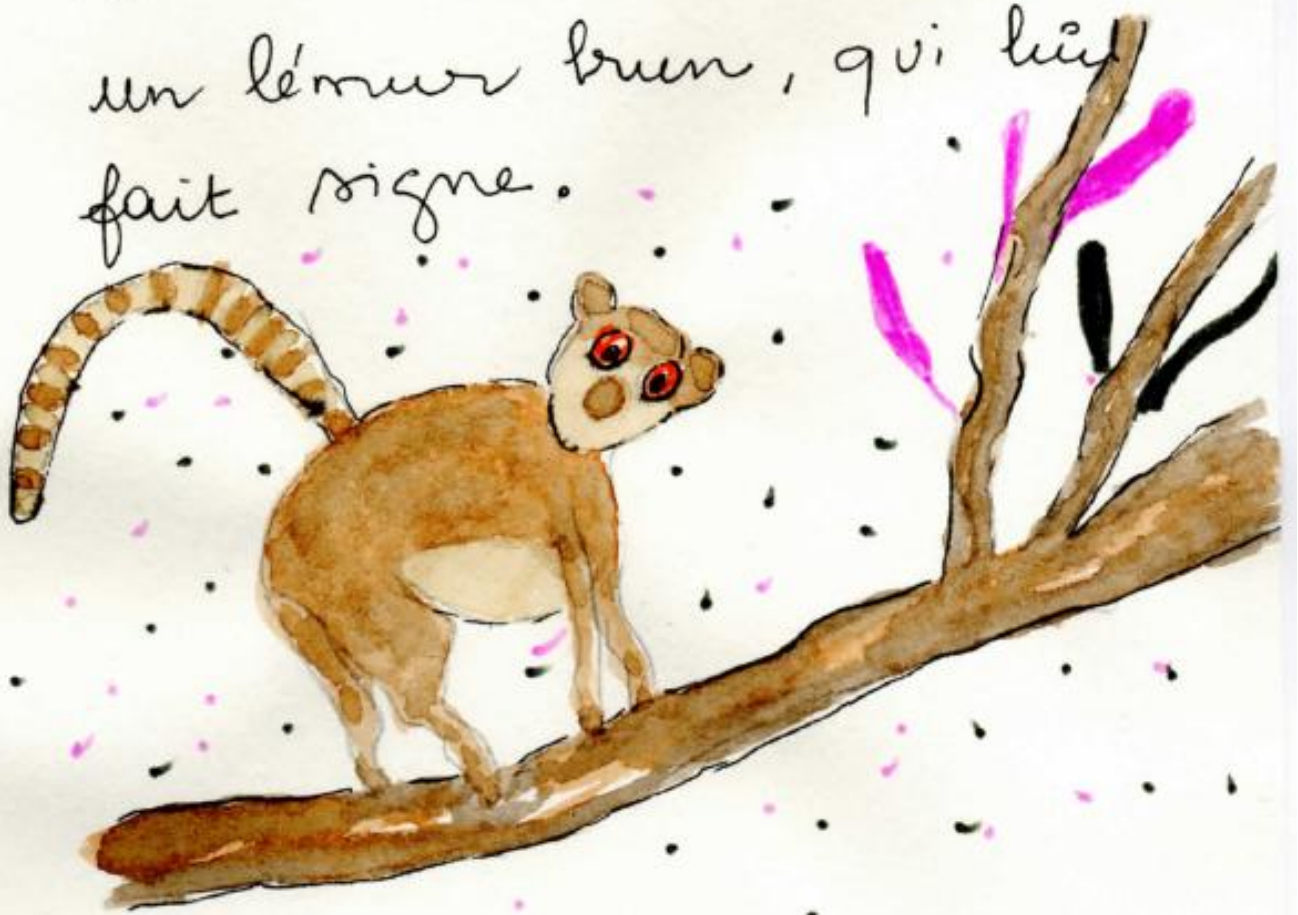 un lémur brun, qui lui
fait signe.